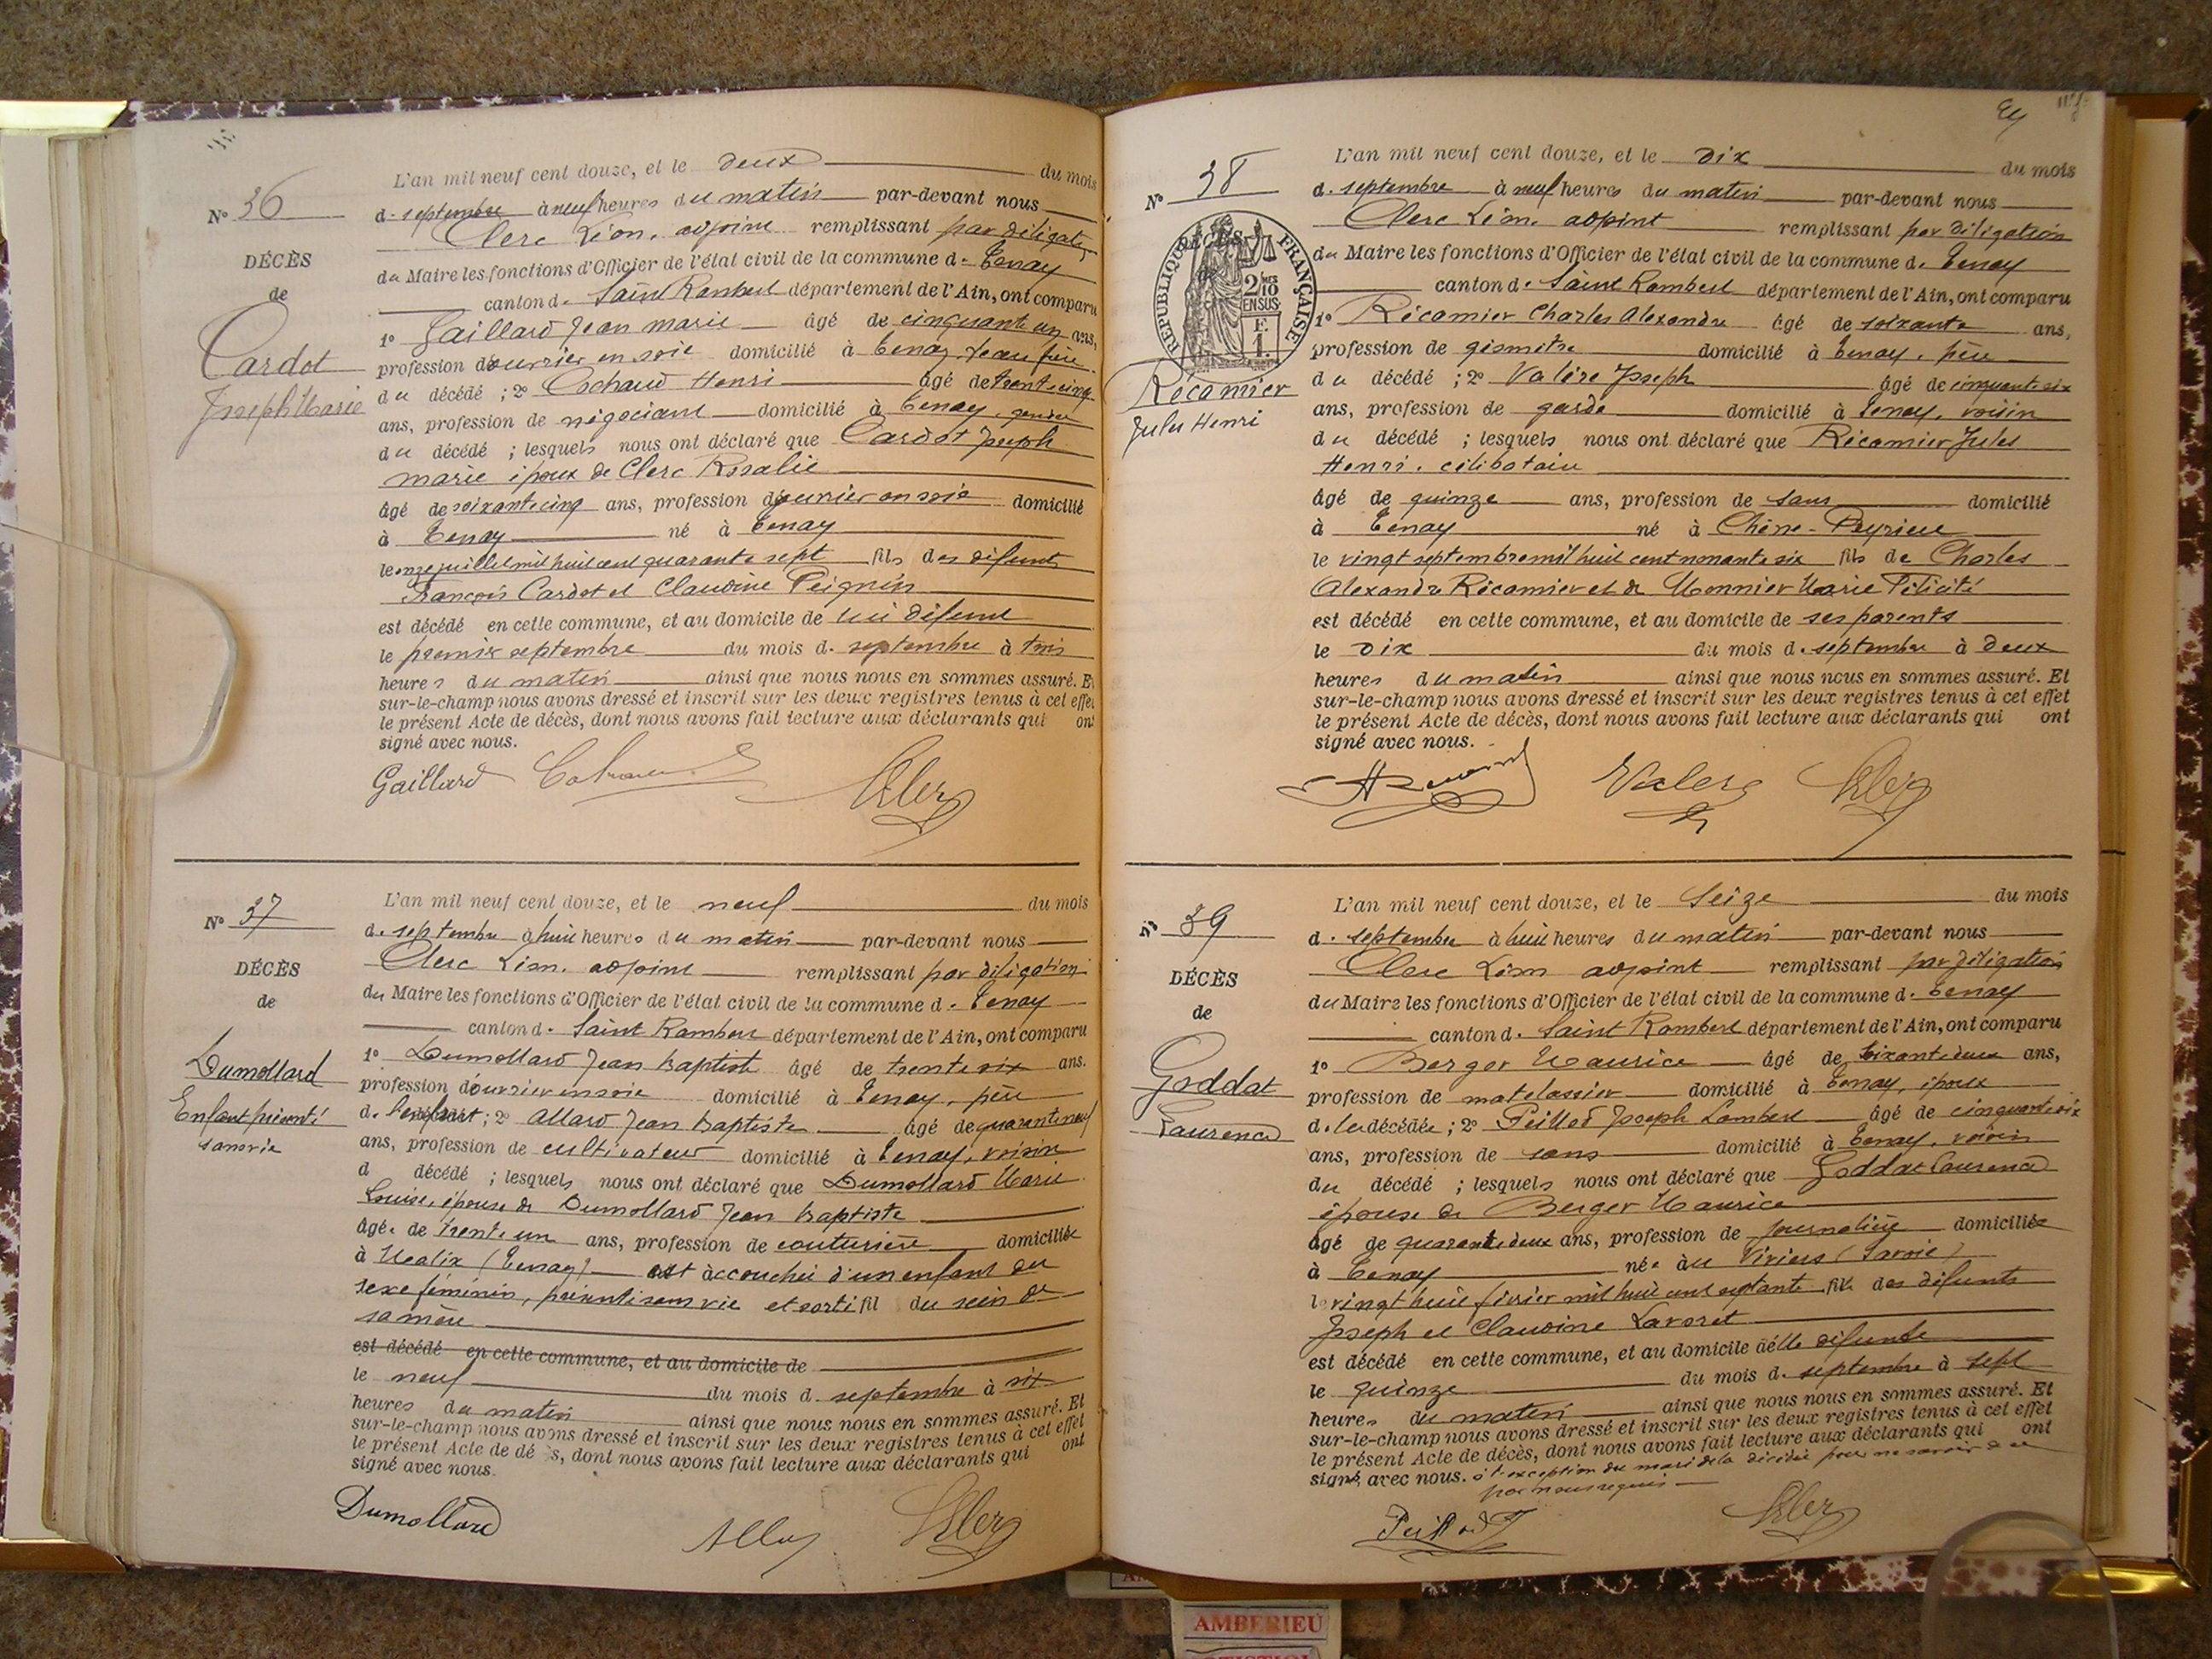 L'an mil neuf cent douze, et le deux du mois
N° 36
d. septembre à neuf heures du matin par-devant nous
Clerc Léon, adjoint remplissant par délégat
DÉCÈS
du Maire les fonctions d'Officier de l'état civil de la commune d. Tenay
de
canton d. Saint Rambert département de l'Ain, ont comparu
1° Gaillard Jean marie âgé de cinquante un ans,
Cardot
profession d'ouvrier en soie domicilié à Tenay, beau frère
Joseph Marie
du décédé ; 2° Cochard Henri âgé de trente cinq
ans, profession de négociant domicilié à Tenay, gendre
du décédé ; lesquels nous ont déclaré que Cardot Joseph
marie époux de Clerc Rosalie
âgé de soixante cinq ans, profession d'ouvrier en soie domicilié
à Tenay né à Tenay
le onze juillet mil huit cent quarante sept fils des défunts
François Cardot et Claudine Peignin
est décédé en cette commune, et au domicile de lui défunt
le premier septembre du mois d. septembre à trois
heures du matin ainsi que nous nous en sommes assuré. Et
sur-le-champ nous avons dressé et inscrit sur les deux registres tenus à cet effet
le présent Acte de décès, dont nous avons fait lecture aux déclarants qui ont
signé avec nous.
Gaillard Clerc
L'an mil neuf cent douze, et le neuf du mois
N° 37
d. septembre à huit heures du matin par-devant nous
Clerc Léon, adjoint remplissant par délégation
DÉCÈS
du Maire les fonctions d'Officier de l'état civil de la commune d. Tenay
de
canton d. Saint Rambert département de l'Ain, ont comparu
1° Dumollard Jean Baptiste âgé de trente six ans.
Dumollard
profession d'ouvrier en soie domicilié à Tenay, père
Enfant présenté
d. l'enfant ; 2° Allard Jean Baptiste âgé de quarante neuf
sans vie
ans, profession de cultivateur domicilié à Tenay, voisin
d décédé ; lesquels nous ont déclaré que Dumollard Marie
Louise, épouse de Dumollard Jean Baptiste
âgée de trente un ans, profession de couturière domiciliée
à Malix (Tenay) est accouchée d'un enfant du
sexe féminin, présenté sans vie et sorti fil du sein de
sa mère
est décédé en cette commune, et au domicile de
le neuf du mois d. septembre à six
heures du matin ainsi que nous nous en sommes assuré. Et
sur-le-champ nous avons dressé et inscrit sur les deux registres tenus à cet effet
le présent Acte de décès, dont nous avons fait lecture aux déclarants qui ont
signé avec nous.
Dumollard Clerc
L'an mil neuf cent douze, et le dix du mois
N° 38
d. septembre à neuf heures du matin par-devant nous
Clerc Léon, adjoint remplissant par délégation
DÉCÈS
de
RÉPUBLIQUE FRANÇAISE
2/10 EN SUS
F. 1.
du Maire les fonctions d'Officier de l'état civil de la commune d. Tenay
canton d. Saint Rambert département de l'Ain, ont comparu
1° Récamier Charles Alexandre âgé de soixante ans,
profession de géomètre domicilié à Tenay, père
Récamier
du décédé ; 2° Valère Joseph âgé de cinquante six
Jules Henri
ans, profession de garde domicilié à Tenay, voisin
du décédé ; lesquels nous ont déclaré que Récamier Jules
Henri, célibataire
âgé de quinze ans, profession de sans domicilié
à Tenay né à Chêne-Peyrieu
le vingt septembre mil huit cent nonante six fils de Charles
Alexandre Récamier et de Monnier Marie Félicité
est décédé en cette commune, et au domicile de ses parents
le dix du mois d. septembre à deux
heures du matin ainsi que nous nous en sommes assuré. Et
sur-le-champ nous avons dressé et inscrit sur les deux registres tenus à cet effet
le présent Acte de décès, dont nous avons fait lecture aux déclarants qui ont
signé avec nous.
Valere Clerc
L'an mil neuf cent douze, et le seize du mois
N° 39
d. septembre à huit heures du matin par-devant nous
Clerc Léon adjoint remplissant par délégation
DÉCÈS
du Maire les fonctions d'Officier de l'état civil de la commune d. Tenay
de
canton d. Saint Rambert département de l'Ain, ont comparu
1° Berger Maurice âgé de soixante deux ans,
Goddat
profession de matelassier domicilié à Tenay, époux
Laurence
d. la décédée ; 2° Peillod Joseph Lambert âgé de cinquante six
ans, profession de sans domicilié à Tenay, voisin
du décédé ; lesquels nous ont déclaré que Goddat Laurence
épouse de Berger Maurice
âgé de quarante deux ans, profession de journalière domiciliée
à Tenay née au Viviers (Savoie)
le vingt huit février mil huit cent septante fille des défunts
Joseph et Claudine Lavoret
est décédé en cette commune, et au domicile d'elle défunte
le quinze du mois d. septembre à sept
heures du matin ainsi que nous nous en sommes assuré. Et
sur-le-champ nous avons dressé et inscrit sur les deux registres tenus à cet effet
le présent Acte de décès, dont nous avons fait lecture aux déclarants qui ont
signé avec nous. à l'exception du mari de la décédée pour ne savoir de ce
par nous requis
Peillod J Clerc
AMBERIEU